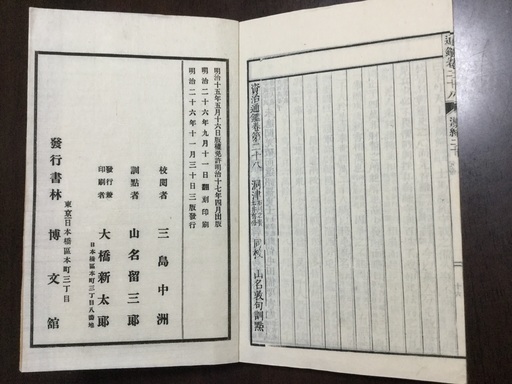 通鑑卷二十八
漢紀二十
資治通鑑卷第二十八
山名敦句訓點
明治十五年五月十六日版權免許明治十七年四月出版
明治二十六年九月十一日翻刻印刷
明治二十六年十一月三十日三版發行
校閱者 三島中洲
訓點者 山名留三郎
發行兼印刷者 大橋新太郎
日本橋區本町三丁目八番地
東京日本橋區本町三丁目
發行書林 博文館